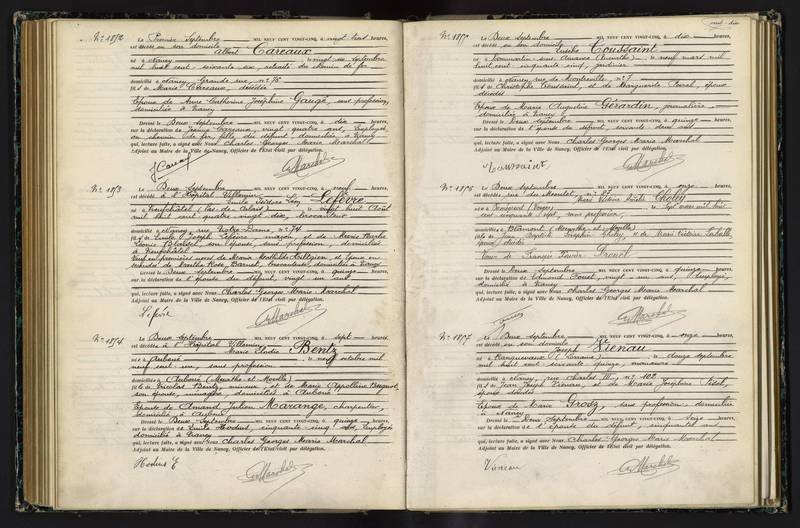 N° 1872 Le Premier Septembre MIL NEUF CENT VINGT-CINQ, à vingt trois heures,
est décédé en son domicile
Albert Careaux
né à Nancy le vingt six septembre
mil huit cent soixante six, retraité du chemin de fer
domicilié à Nancy, Grande rue, n° 76
fils de Marie Careaux, décédée
Époux de Anne Catherine Joséphine Gaugé, sans profession,
domiciliée à Nancy
Dressé le Deux Septembre MIL NEUF CENT VINGT-CINQ, à dix heures,
sur la déclaration de Careaux, vingt quatre ans, Employé
de chemin de fer, fils du défunt, domicilié à Nancy
qui, lecture faite, a signé avec Nous Charles Georges Marie Marchal
Adjoint au Maire de la Ville de Nancy, Officier de l'État civil par délégation.
N° 1873 Le Deux Septembre MIL NEUF CENT VINGT-CINQ, à neuf heures,
est décédé à l'Hôpital Villemin
Emile Isidore Léon Lefèvre
né à Neufchâtel (Pas de Calais) le vingt huit Août
mil huit cent quatre vingt dix, brocanteur
domicilié à Nancy, rue Notre Dame, n° 74
fils de Emile Joseph Lefèvre, maçon, et de Marie Berthe
Léonie son épouse, sans profession, domiciliés
à Neufchâtel
Veuf en premières noces de Marie Mathilde et époux en
secondes de Marthe Rose Barnet, brocanteuse, domiciliée à Nancy
Dressé le Deux Septembre MIL NEUF CENT VINGT-CINQ, à quinze heures,
sur la déclaration de l'épouse du défunt, vingt un ans
qui, lecture faite, a signé avec Nous Charles Georges Marie Marchal
Adjoint au Maire de la Ville de Nancy, Officier de l'État civil par délégation.
N° 1874 Le Deux Septembre MIL NEUF CENT VINGT-CINQ, à sept heures,
est décédée à l'Hôpital Villemin
Marie Elodie Bentz
née à Auboué le neuf octobre mil
neuf cent un, sans profession
domiciliée à Auboué (Meurthe et Moselle)
fille de Nicolas Bentz, mineur, et de Marie Appoline
son épouse, ménagère, domiciliés à Auboué
Épouse de Amand Julien Marange, charpentier,
domicilié à Auboué
Dressé le Deux Septembre MIL NEUF CENT VINGT-CINQ, à quinze heures,
sur la déclaration de Emile Hodus, cinquante cinq ans, Employé
domicilié à Nancy
qui, lecture faite, a signé avec Nous Charles Georges Marie Marchal
Adjoint au Maire de la Ville de Nancy, Officier de l'État civil par délégation.
Hodus E
N° 1875 Le Deux Septembre MIL NEUF CENT VINGT-CINQ, à dix heures,
est décédé en son domicile
Toussaint
né à le neuf mars mil
huit cent cinquante neuf, jardinier
domicilié à Nancy, rue de n° 7
fils de Christophe Toussaint, et de Marguerite époux
décédés
Époux de Marie Augustine Gérardin, journalière
domiciliée à Nancy
Dressé le Deux Septembre MIL NEUF CENT VINGT-CINQ, à quinze heures,
sur la déclaration de l'épouse du défunt, soixante deux ans
qui, lecture faite, a signé avec Nous Charles Georges Marie Marchal
Adjoint au Maire de la Ville de Nancy, Officier de l'État civil par délégation.
Toussaint
N° 1876 Le Deux Septembre MIL NEUF CENT VINGT-CINQ, à onze heures,
est décédée rue
Marie Chotey
née à (Vosges) le Sept mars mil huit
cent cinquante sept, sans profession,
domiciliée à Blâmont (Meurthe et Moselle)
fille de Jean Joseph Chotey, et de Marie Victoire
époux décédés
Veuve de François Xavier Drouel
Dressé le Deux Septembre MIL NEUF CENT VINGT-CINQ, à quinze heures,
sur la déclaration de vingt six ans, Employé,
domicilié à Nancy
qui, lecture faite, a signé avec Nous Charles Georges Marie Marchal
Adjoint au Maire de la Ville de Nancy, Officier de l'État civil par délégation.
N° 1877 Le Deux Septembre MIL NEUF CENT VINGT-CINQ, à onze heures,
est décédé en son domicile
Joseph Vienau
né à Ranguevaux (Lorraine) le douze septembre
mil huit cent soixante quinze, manœuvre
domicilié à Nancy, rue Charles III, n° 102
fils de Jean Joseph Vienau, et de Marie Joséphine
époux décédés
Époux de Marie Grodz, sans profession, domiciliée
à Nancy
Dressé le Deux Septembre MIL NEUF CENT VINGT-CINQ, à seize heures,
sur la déclaration de l'épouse du défunt, cinquante ans
qui, lecture faite, a signé avec Nous Charles Georges Marie Marchal
Adjoint au Maire de la Ville de Nancy, Officier de l'État civil par délégation.